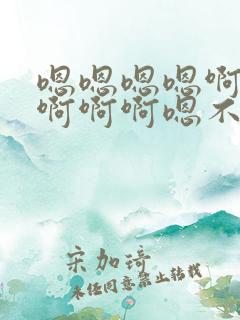 嗯嗯嗯嗯啊
啊啊啊嗯不
宋加琦
未经同意禁止转载